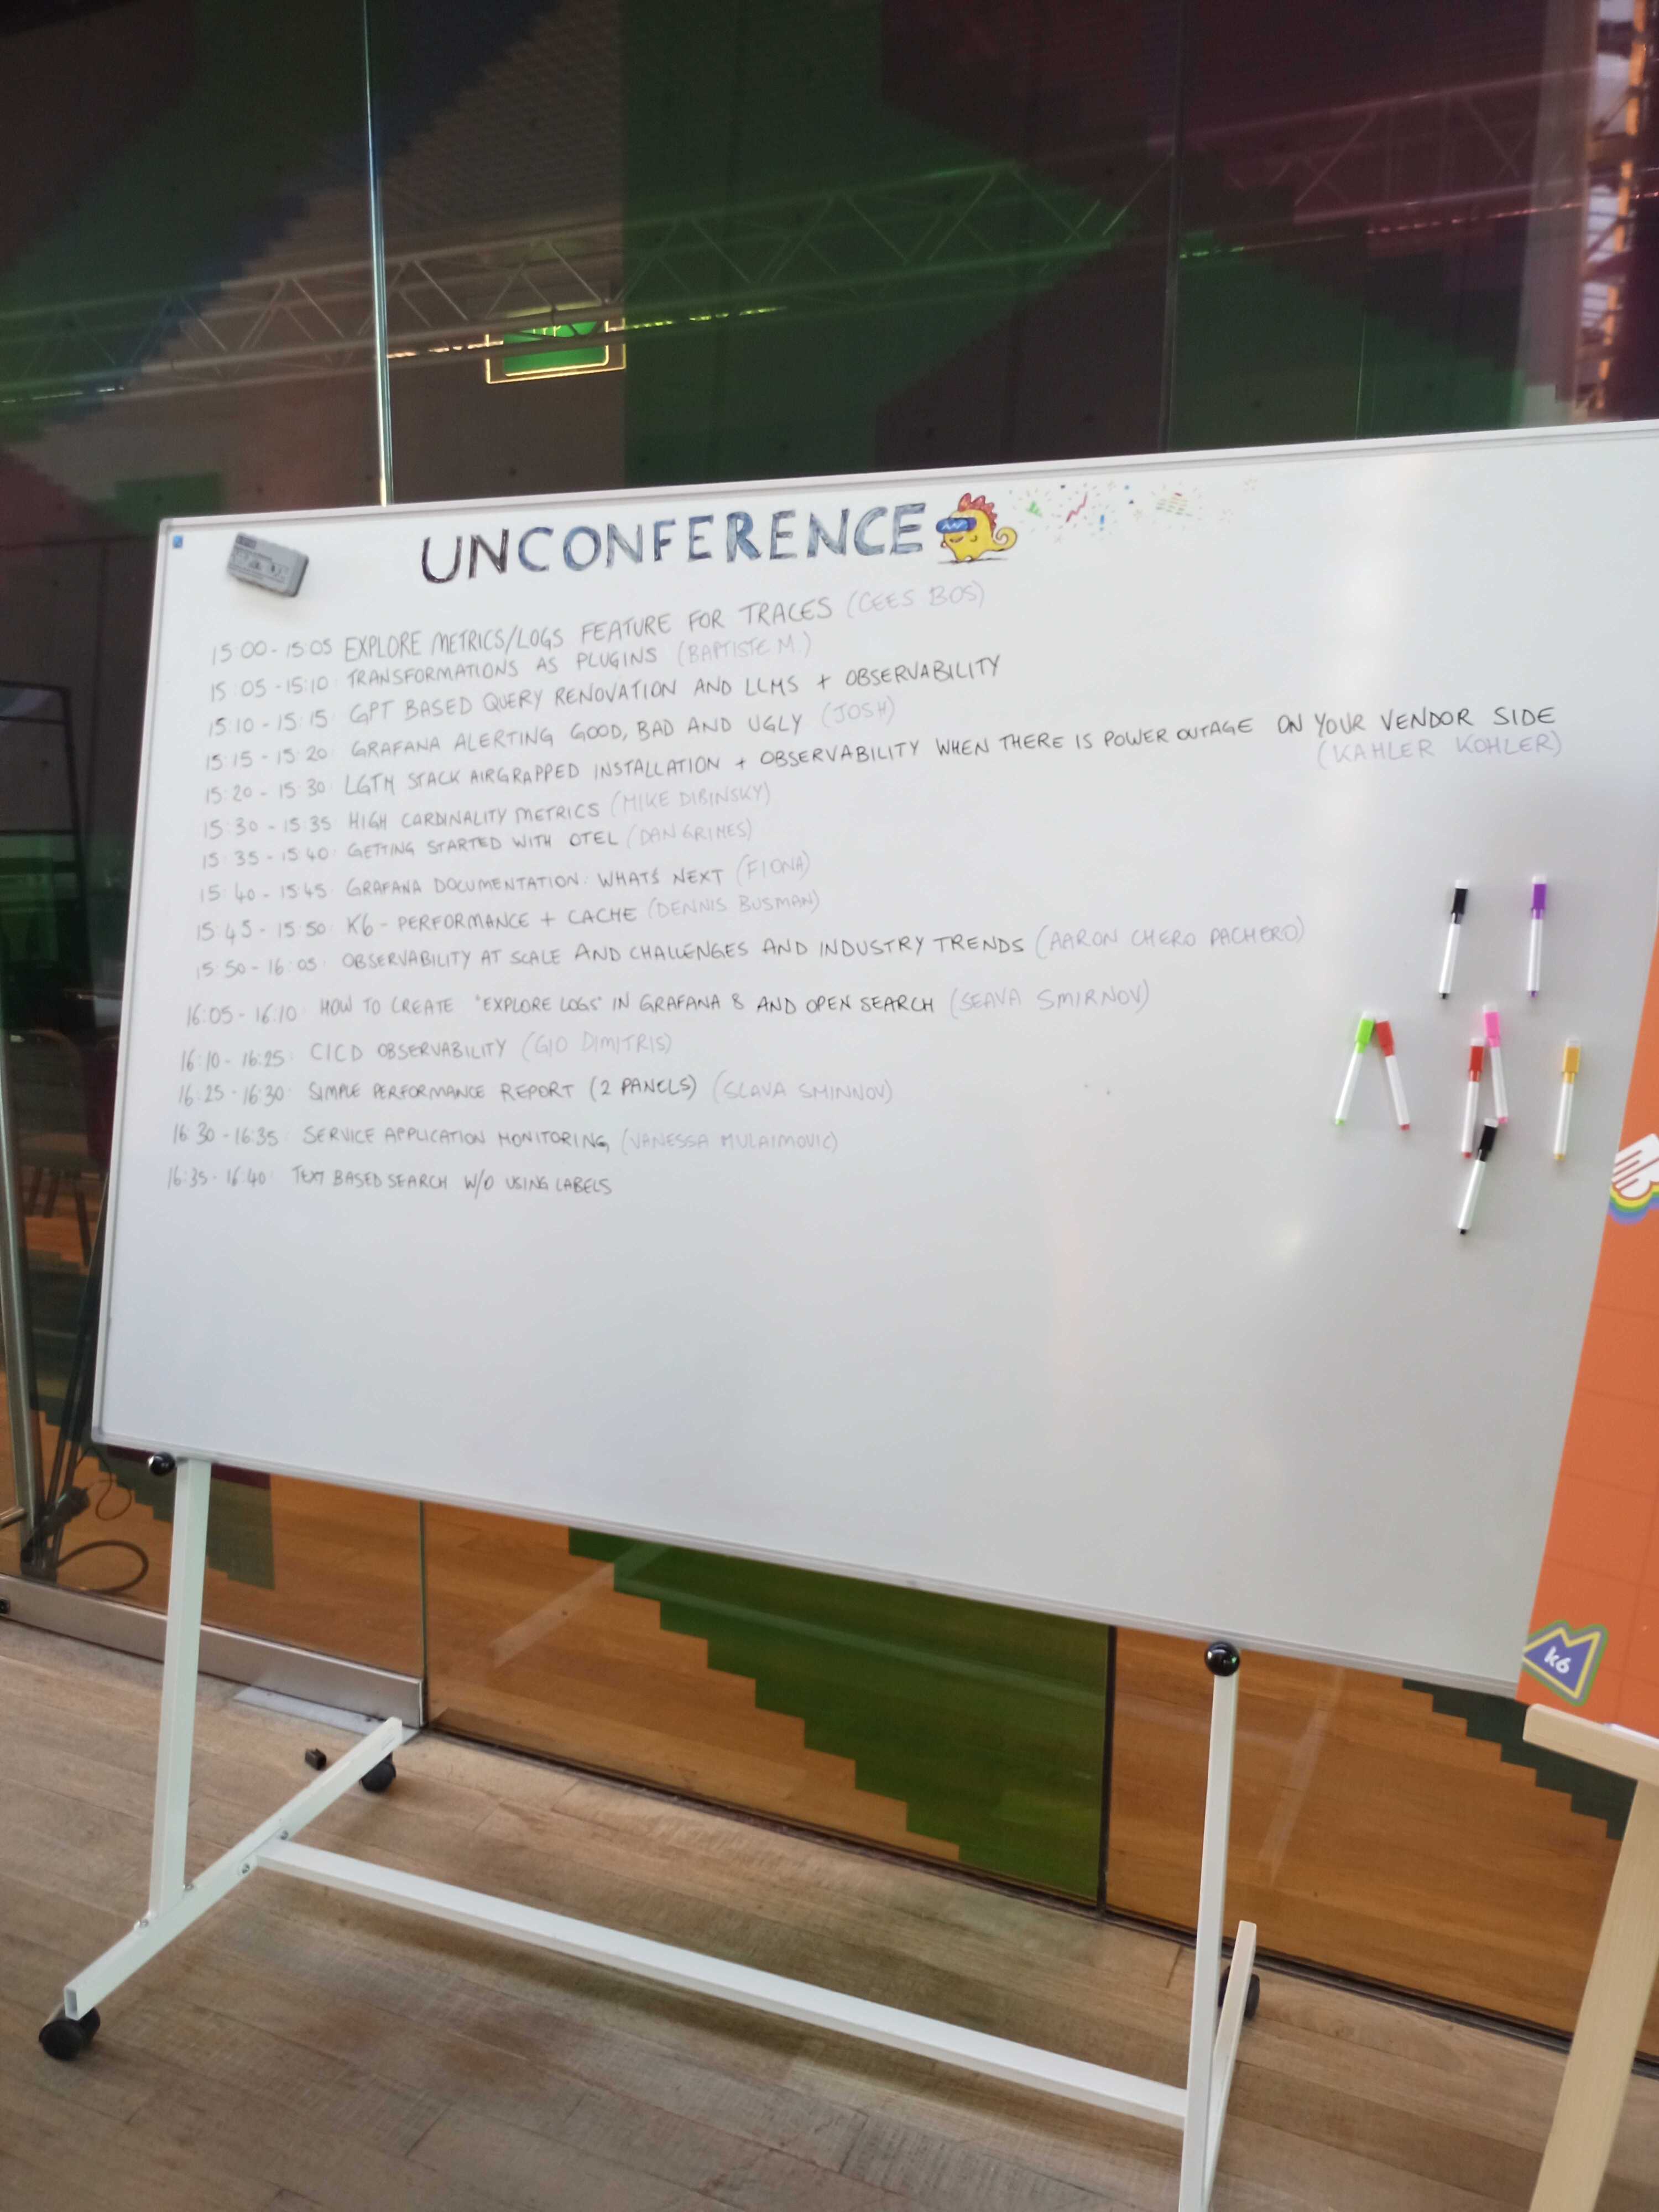 UNCONFERENCE
15:00 - 15:05 EXPLORE METRICS/LOGS FEATURE FOR TRACES (CEES BOS)
15:05 - 15:10: TRANSFORMATIONS AS PLUGINS (BAPTISTE M.)
15:10 - 15:15: GPT BASED QUERY RENOVATION AND LLMS + OBSERVABILITY
15:15 - 15:20: GRAFANA ALERTING GOOD, BAD AND UGLY (JOSH)
15:20 - 15:30: LGTM STACK AIRGRAPPED INSTALLATION + OBSERVABILITY WHEN THERE IS POWER OUTAGE ON YOUR VENDOR SIDE
(KAHLER KOHLER)
15:30 - 15:35 HIGH CARDINALITY METRICS (MIKE DIBINSKY)
15:35 - 15:40: GETTING STARTED WITH OTEL (DAN GRIMES)
15:40 - 15:45: GRAFANA DOCUMENTATION: WHATS NEXT (FIONA)
15:45 - 15:50: K6 - PERFORMANCE + CACHE (DENNIS BUSMAN)
15:50 - 16:05: OBSERVABILITY AT SCALE AND CHALLENGES AND INDUSTRY TRENDS (AARON CHERO PACHERO)
16:05 - 16:10: HOW TO CREATE "EXPLORE LOGS" IN GRAFANA 8 AND OPEN SEARCH (SEAVA SMIRNOV)
16:10 - 16:25: CICD OBSERVABILITY (GIO DIMITRIS)
16:25 - 16:30: SIMPLE PERFORMANCE REPORT (2 PANELS) (SLAVA SMINNOV)
16:30 - 16:35: SERVICE APPLICATION MONITORING, (VANESSA MULAIMOVIC)
16:35 - 16:40: TEXT BASED SEARCH W/O USING LABELS
k6